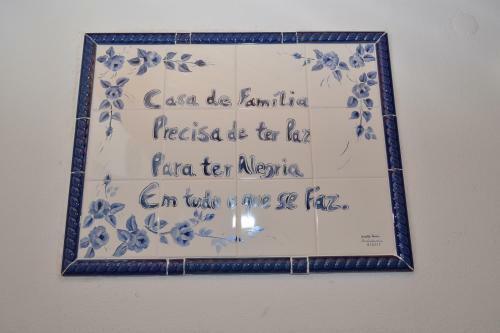 Casa de Família
Precisa de ter Paz
Para ter Alegria
Em tudo o que se faz.